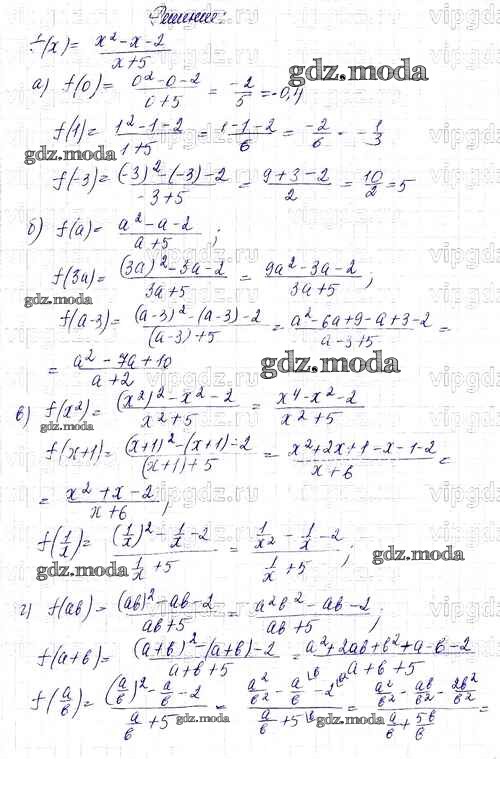 Решение:
f(x) = (x² - x - 2)/(x + 5)
а) f(0) = (0² - 0 - 2)/(0 + 5) = -2/5 = -0,4
f(1) = (1² - 1 - 2)/(1 + 5) = (1 - 1 - 2)/6 = -2/6 - -1/3
f(-3) = ((-3)² - (-3) - 2)/(-3 + 5) = (9 + 3 - 2)/2 = 10/2 = 5
б) f(a) = (a² - a - 2)/(a + 5) ;
f(3a) = ((3a)² - 3a - 2)/(3a + 5) = (9a² - 3a - 2)/(3a + 5) ;
f(a-3) = ((a-3)² - (a-3) - 2)/((a-3) + 5) = (a² - 6a + 9 - a + 3 - 2)/(a - 3 + 5) =
= (a² - 7a + 10)/(a + 2)
в) f(x²) = ((x²)² - x² - 2)/(x² + 5) = (x⁴ - x² - 2)/(x² + 5)
f(x+1) = ((x+1)² - (x+1) - 2)/((x+1) + 5) = (x² + 2x + 1 - x - 1 - 2)/(x + 6) =
= (x² + x - 2)/(x + 6) ;
f(1/x) = ((1/x)² - 1/x - 2)/(1/x + 5) = (1/x² - 1/x - 2)/(1/x + 5) ;
г) f(ab) = ((ab)² - ab - 2)/(ab + 5) = (a²b² - ab - 2)/(ab + 5) ;
f(a+b) = ((a+b)² - (a+b) - 2)/(a + b + 5) = (a² + 2ab + b² + a - b - 2)/(a + b + 5)
f(a/b) = ((a/b)² - a/b - 2)/(a/b + 5) = (a²/b² - a/b - 2)/(a/b + 5) = (a²/b² - ab/b² - 2b²/b²)/(a/b + 5b/b) =
gdz.moda
vipgdz.ru